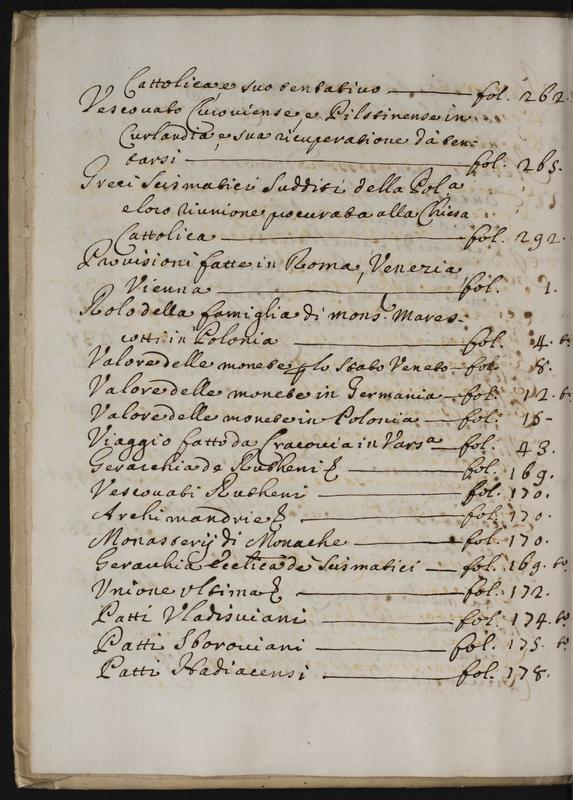 Cattolica e suo tentativo — fol. 262.
Vescovato Curoniense e Pilstinense in
Curlandia, e sua ricuperatione da ten-
tarsi — fol. 265.
Greci Scismatici sudditi della Pola
e loro riunione procurata alla Chiesa
Cattolica — fol. 292.
Provisioni fatte in Roma, Venezia,
Vienna — fol. 1.
Rolo della famiglia di mons. Mares-
cotti in Polonia — fol. 4. to.
Valore delle monete p lo Stato Veneto — fol. 8.
Valore delle monete in Germania — fol. 12. to.
Valore delle monete in Polonia — fol. 15 -
Viaggio fatto da Cracovia in Varsa — fol. 43.
Gerarchia de Rutheni — fol. 169.
Vescovati Rutheni — fol. 170.
Archimandrie — fol. 170.
Monasterij di Monache — fol. 170.
Gerarchia Ecctica de Scismatici — fol. 169. to.
Unione ultima — fol. 172.
Patti Vladisviani — fol. 174. to.
Patti Sboroviani — fol. 175. to.
Patti Hadiacensi — fol. 178.